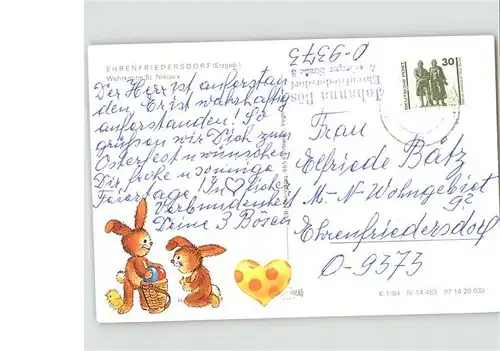 EHRENFRIEDERSDORF (Erzgeb.)
Wehrkirche St. Niklas
Der Herr ist auferstan
den, Er ist wahrhaftig
auferstanden! So
grüßen wir Dich zum
Osterfest u. wünschen
Dir frohe u. sonnige
Feiertage. In ♡licher
Verbundenheit
Deine 3 Böses
O-9373
Johannes Böse
Ehrenfriedersdorf
DEUTSCHE POST
30
Frau
Elfriede Bätz
M.-N-Wohngebiet
92
Ehrenfriedersdorf
O-9373
K 1/84 IV-14-483 07 14 20 035